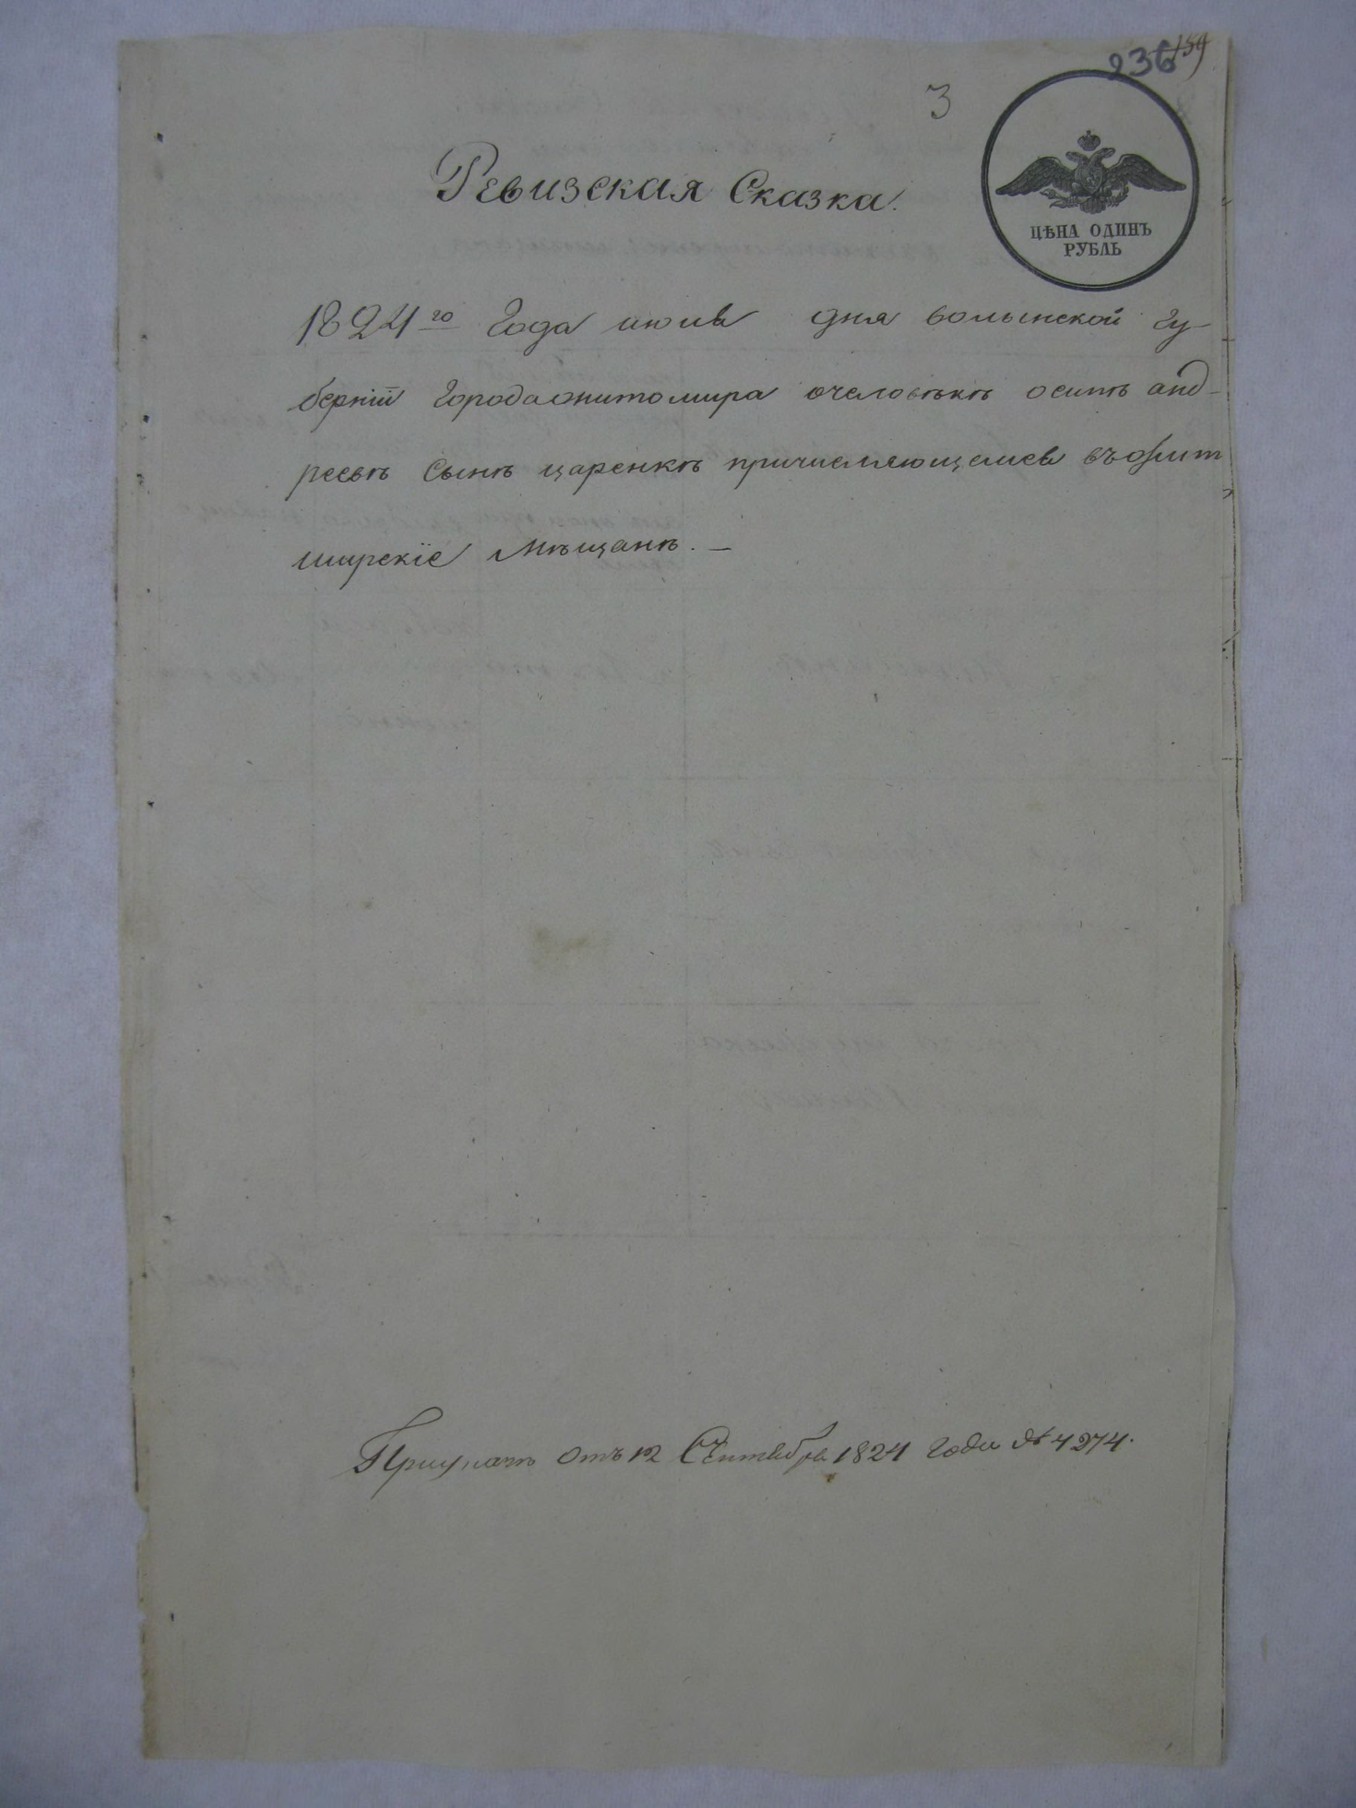 236 159
3
ЦѢНА ОДИНЪ
РУБЛЬ
Ревизская Сказка.
1824го Года июля дня волынской гу-
берніи Города житомира очеловѣкѣ осипѣ анд-
реевѣ сынѣ царенкѣ причисляющемся въжит
мирскіе мѣщанѣ. —
отъ 12 Сентября 1824 года № 4274.